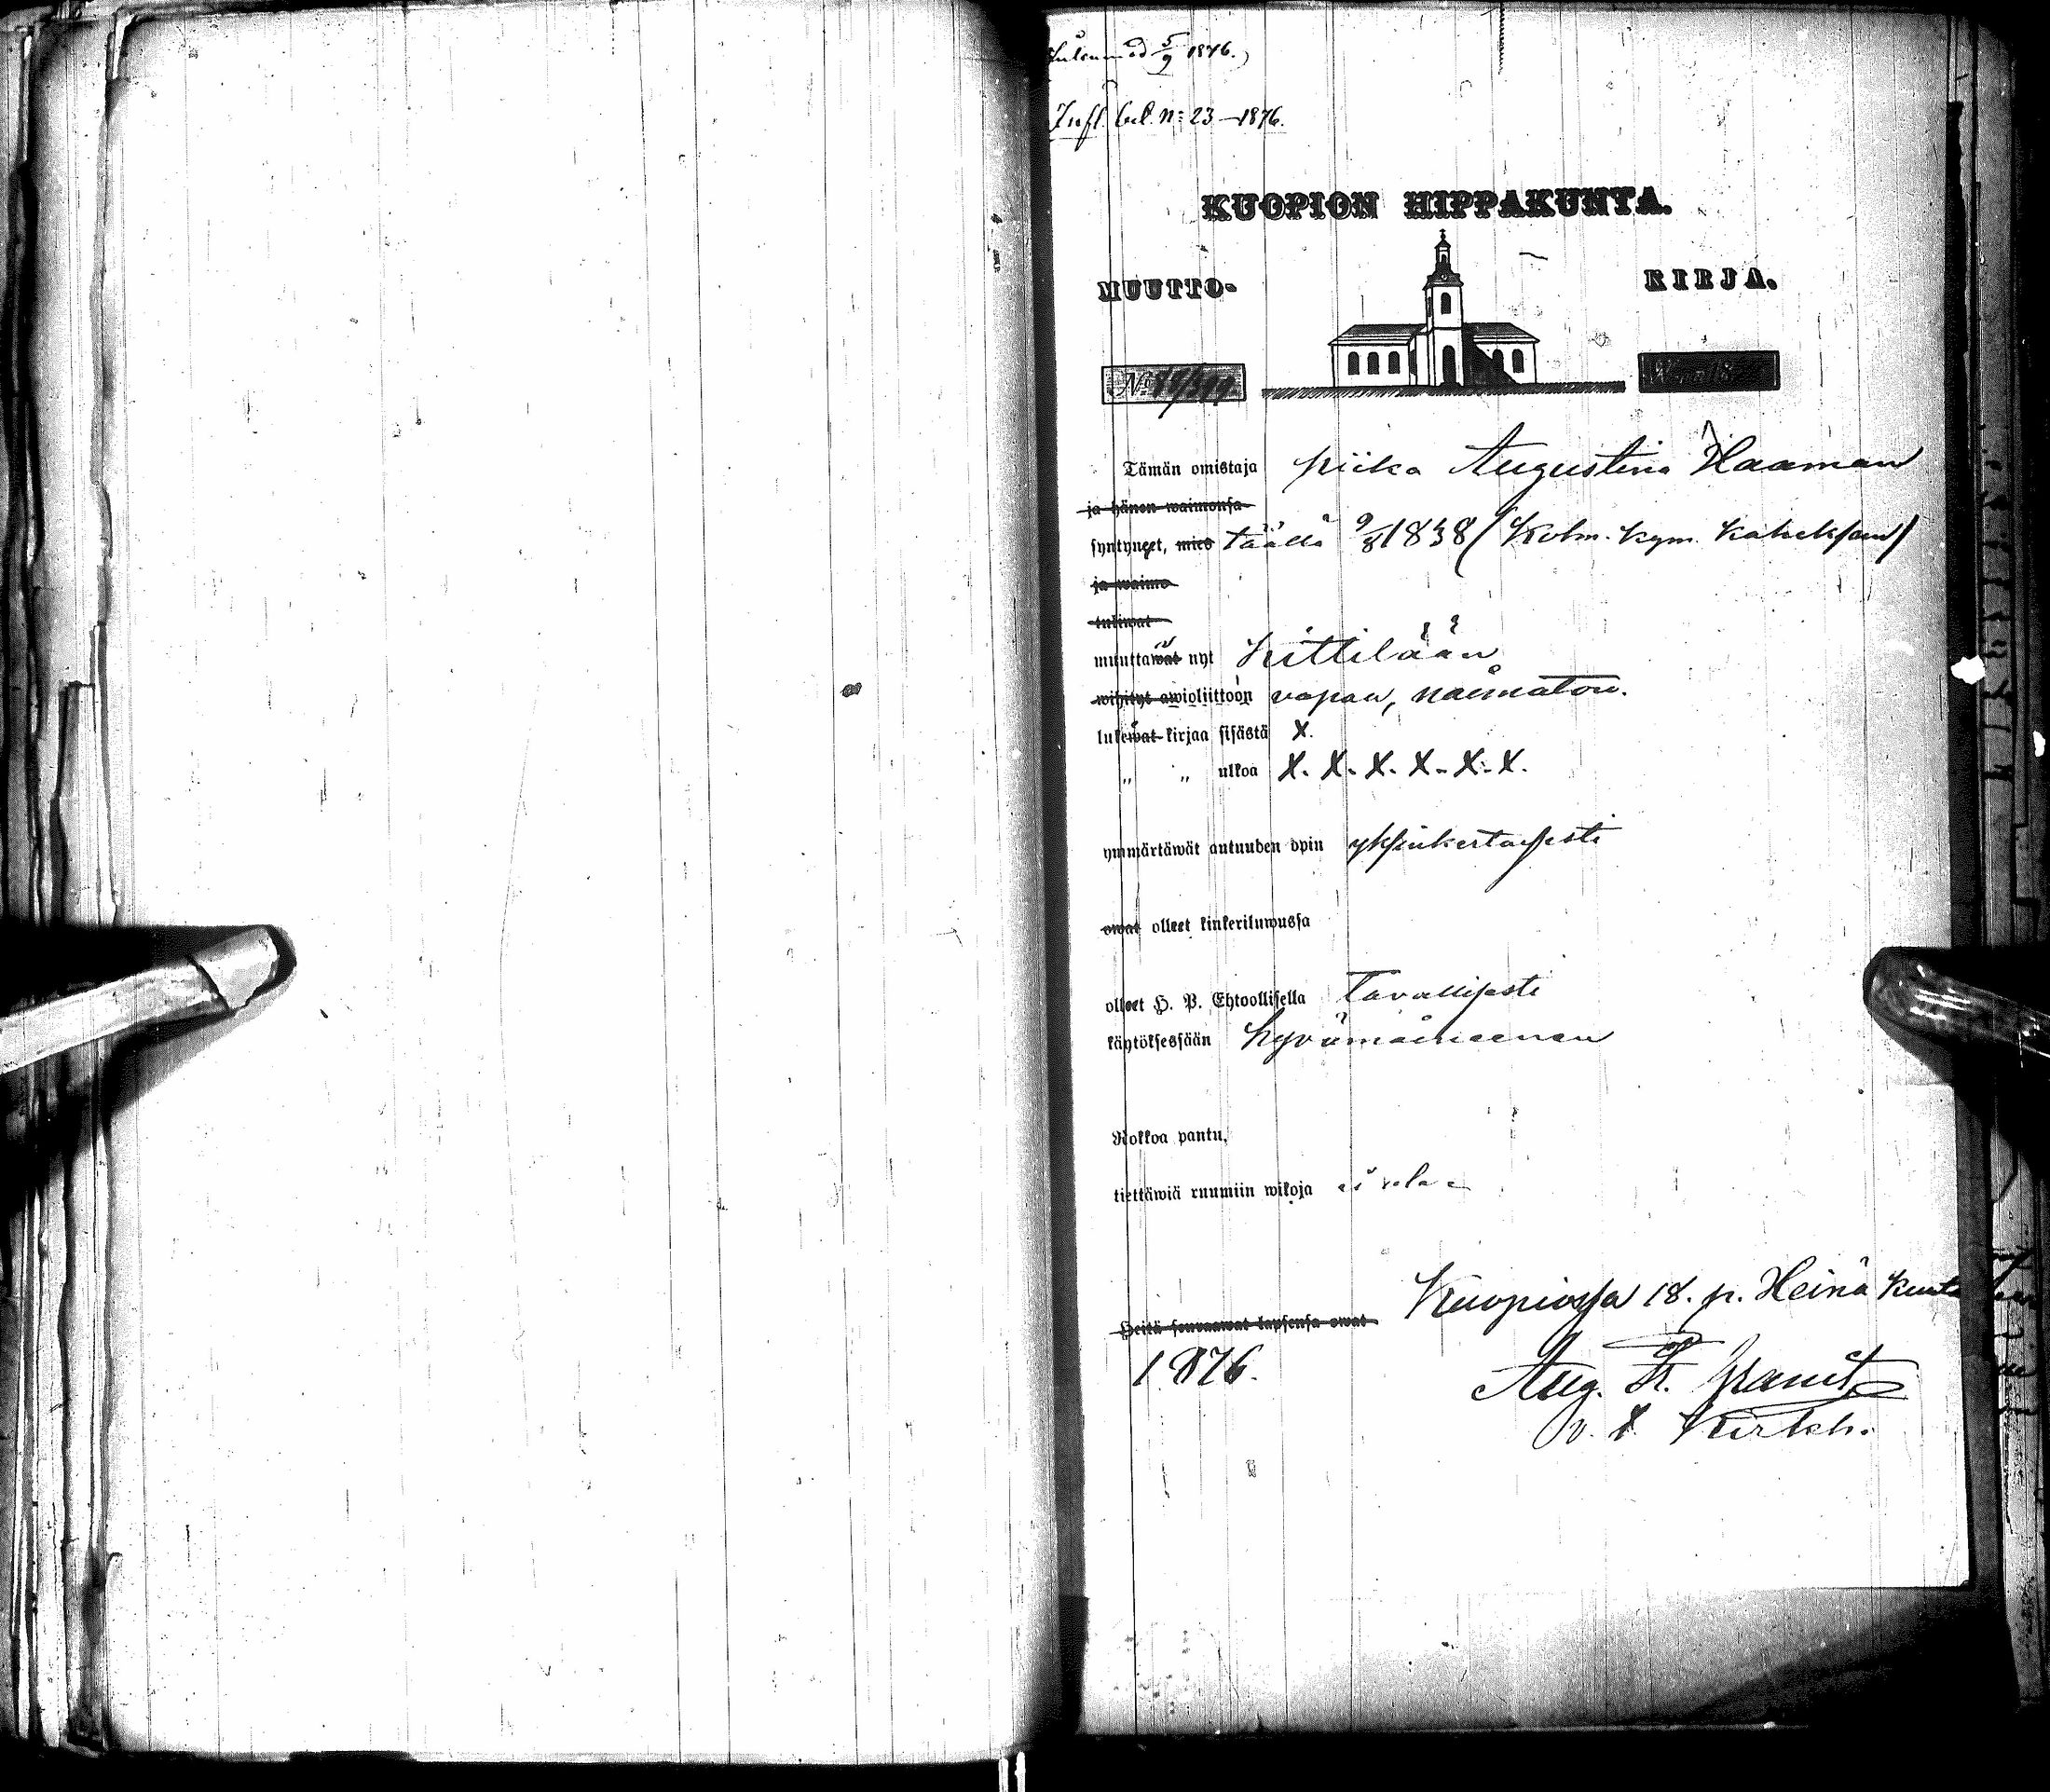 5/9 1876.)
Infl. bet. N: 23 - 1876.
KUOPION HIPPAKUNTA.
MUUTTO- KIRJA.
No
Tämän omistaja piika Augustina Haaman
ja hänen waimonsa
syntyneet, mies täällä 9/8 1838 (Kolm. kym. kaheksan)
ja waimo
tuliwat
muuttawat nyt Kittilään
wihityt awioliittoon vapaa, naimaton.
lukewat kirjaa sisästä X.
„ „ ulkoa X. X. X. X. X. X.
ymmärtäwät autuuden opin yksinkertasesti
owat olleet kinkeriluwussa
olleet H. P. Ehtoollisella Tavallisesti
käytöksessään hyvämaineenen
Rokkoa pantu,
tiettäwiä ruumiin wikoja ei ole
Kuopiossa 18. p. Heinä kuuta
Heitä seuraawat lapsensa owat
1876.
Aug. Fr. Granit
v. t. Kirkh.